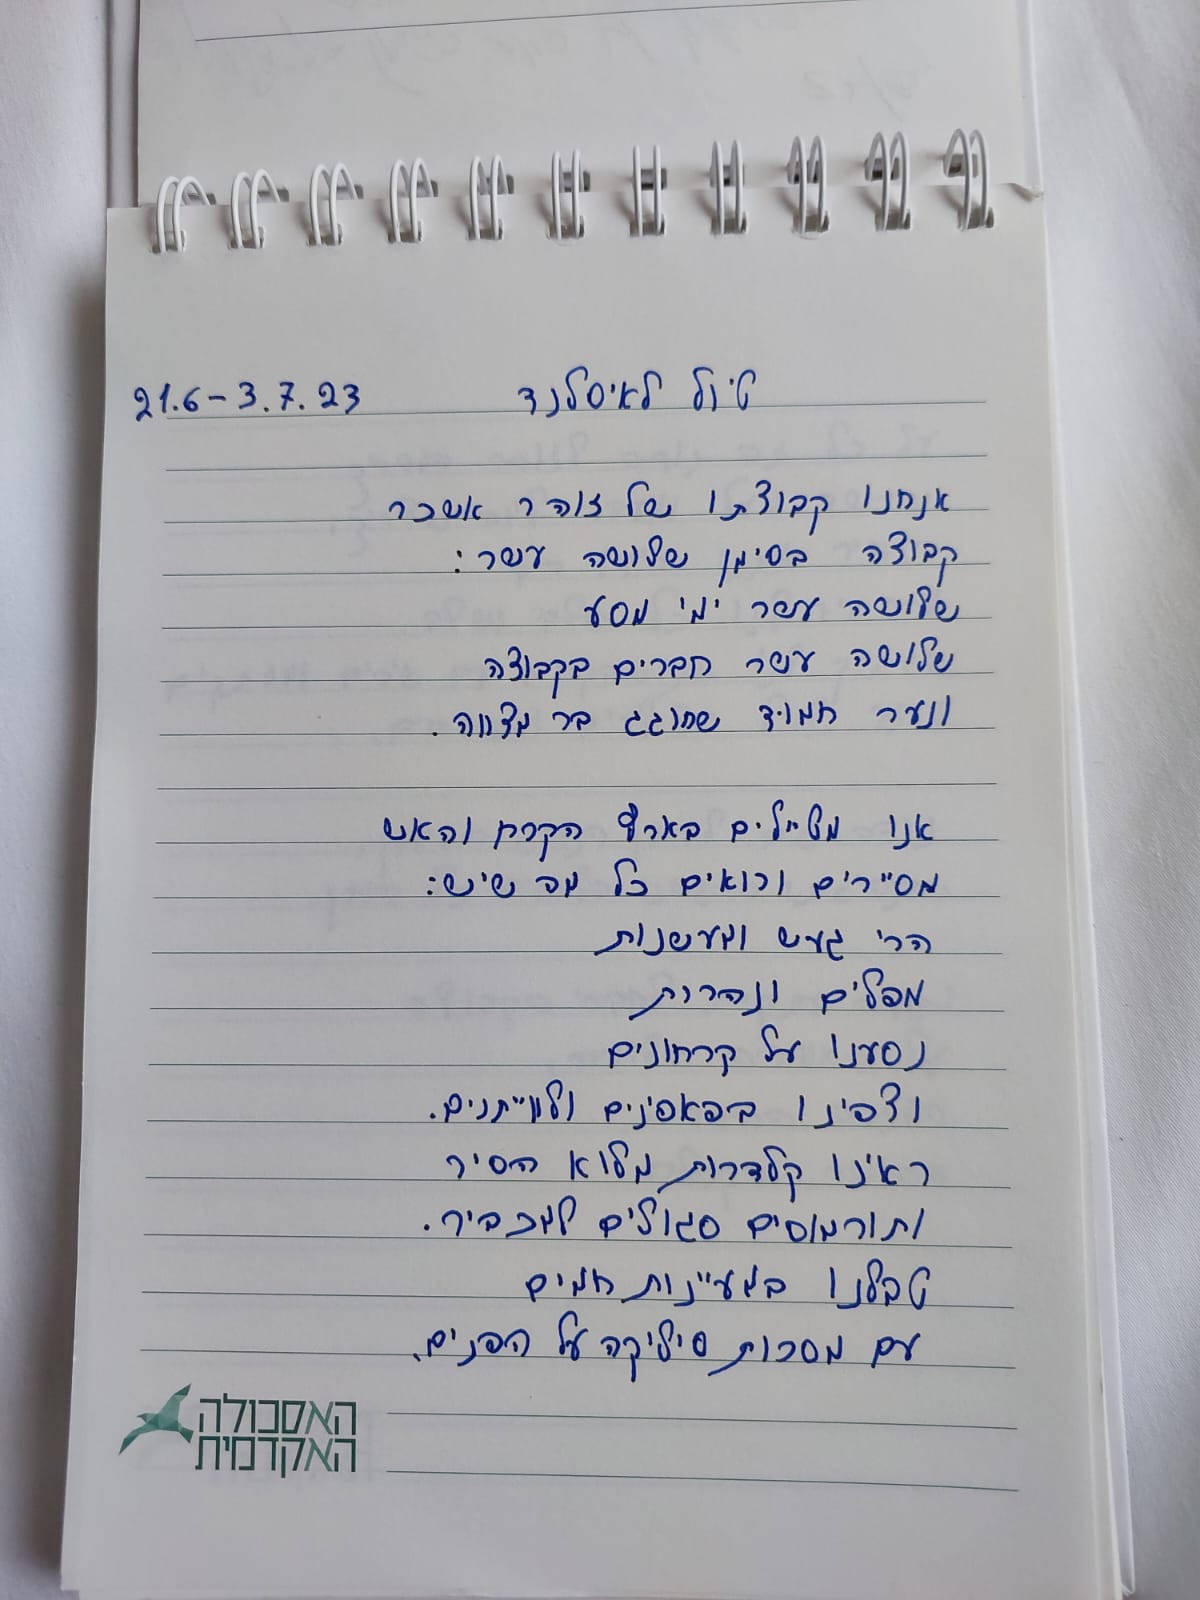 טיול לאיסלנד 21.6-3.7.23
אנחנו קבוצתו של זוהר אשכר
קבוצה בסימן שלושה עשר:
שלושה עשר ימי מסע
שלושה עשר חברים בקבוצה
ונער חמוד שחוגג בר מצווה.
אנו מטיילים בארץ הקרח והאש
מסיירים ורואים כל מה שיש:
הרי געש ומעשנות
מפלים ונהרות
נסענו על קרחונים
וצפינו בפאפינים ולוייתנים.
ראינו קלדרות מלוא הסיר
ותורמוסים סגולים למכביר.
טבלנו במעיינות חמים
עם מסכות סיליקה על הפנים.
האסכולה
האקדמית